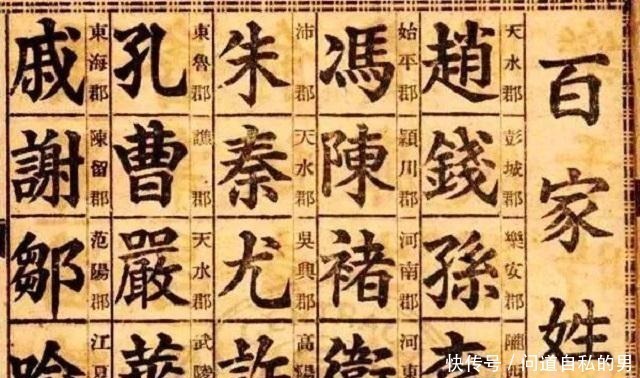 百家姓
天水郡 彭城郡 樂安郡 隴
趙錢孫
始平郡 穎川郡 河南郡 河東
馮陳褚衛
沛郡 天水郡 吳興郡 高陽
朱秦尤許
東魯郡 譙郡 天水郡 武陵
孔曹嚴華
東海郡 陳留郡 范陽郡 江夏
戚謝鄒喻
快传号 / 问道自私的男